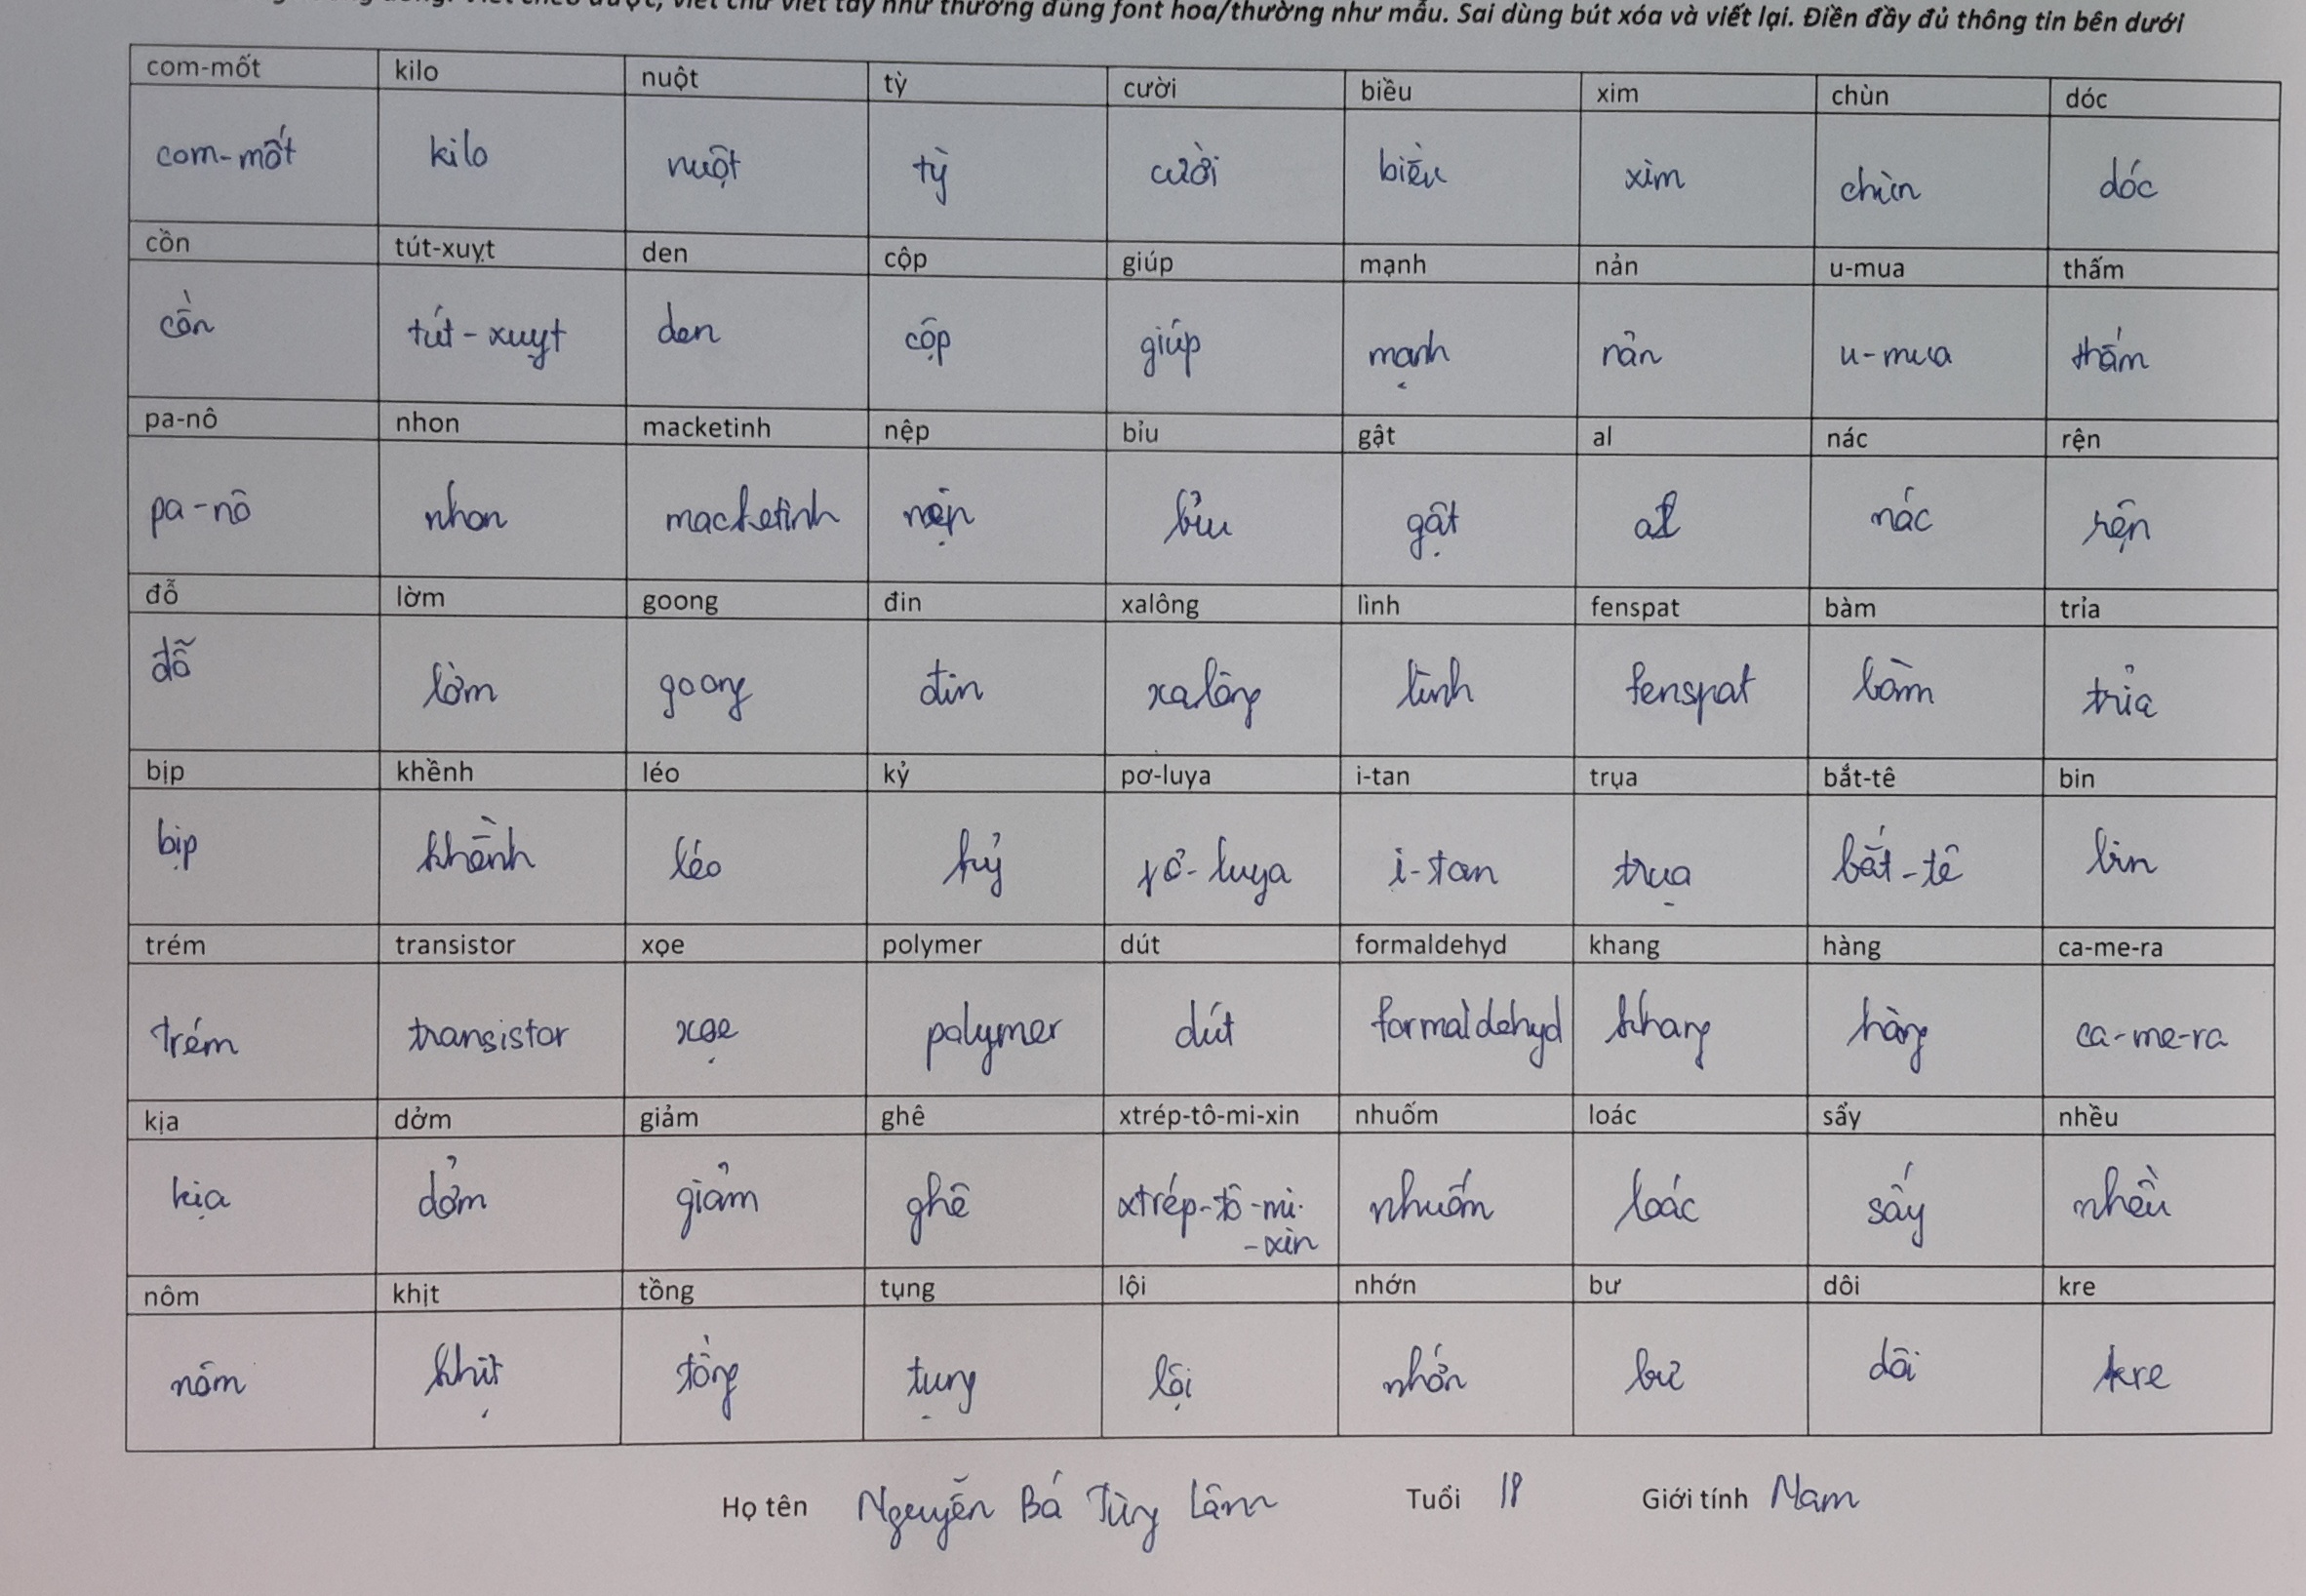 viết chữ viết tay như thường dùng font hoa/thường như mẫu. Sai dùng bút xóa và viết lại. Điền đầy đủ thông tin bên dưới
com-mốt kilo nuột tỳ cười biều xim chùn dóc
com-mốt kilo nuột tỳ cười biều xim chùn dóc
cồn tút-xuỵt den cộp giúp mạnh nản u-mua thấm
cồn tút-xuỵt den cộp giúp mạnh nản u-mua thấm
pa-nô nhon macketinh nệp bỉu gật al nác rện
pa-nô nhon macketinh nệp bỉu gật al nác rện
đỗ lờm goong đin xalông lình fenspat bàm trỉa
đỗ lờm goong đin xalông lình fenspat bàm trỉa
bịp khềnh léo kỷ pơ-luya i-tan trụa bắt-tê bin
bịp khềnh léo kỷ pơ-luya i-tan trụa bắt-tê bin
trém transistor xọe polymer dút formaldehyd khang hàng ca-me-ra
trém transistor xọe polymer dút formaldehyd khang hàng ca-me-ra
kịa dởm giảm ghê xtrép-tô-mi-xin nhuốm loác sẩy nhều
kịa dởm giảm ghê xtrép-tô-mi- nhuốm loác sấy nhều
-xin
nôm khịt tồng tụng lội nhớn bư dôi kre
nôm khịt tồng tụng lội nhớn bư dôi kre
Họ tên Nguyễn Bá Tùng Lâm Tuổi 18 Giới tính Nam